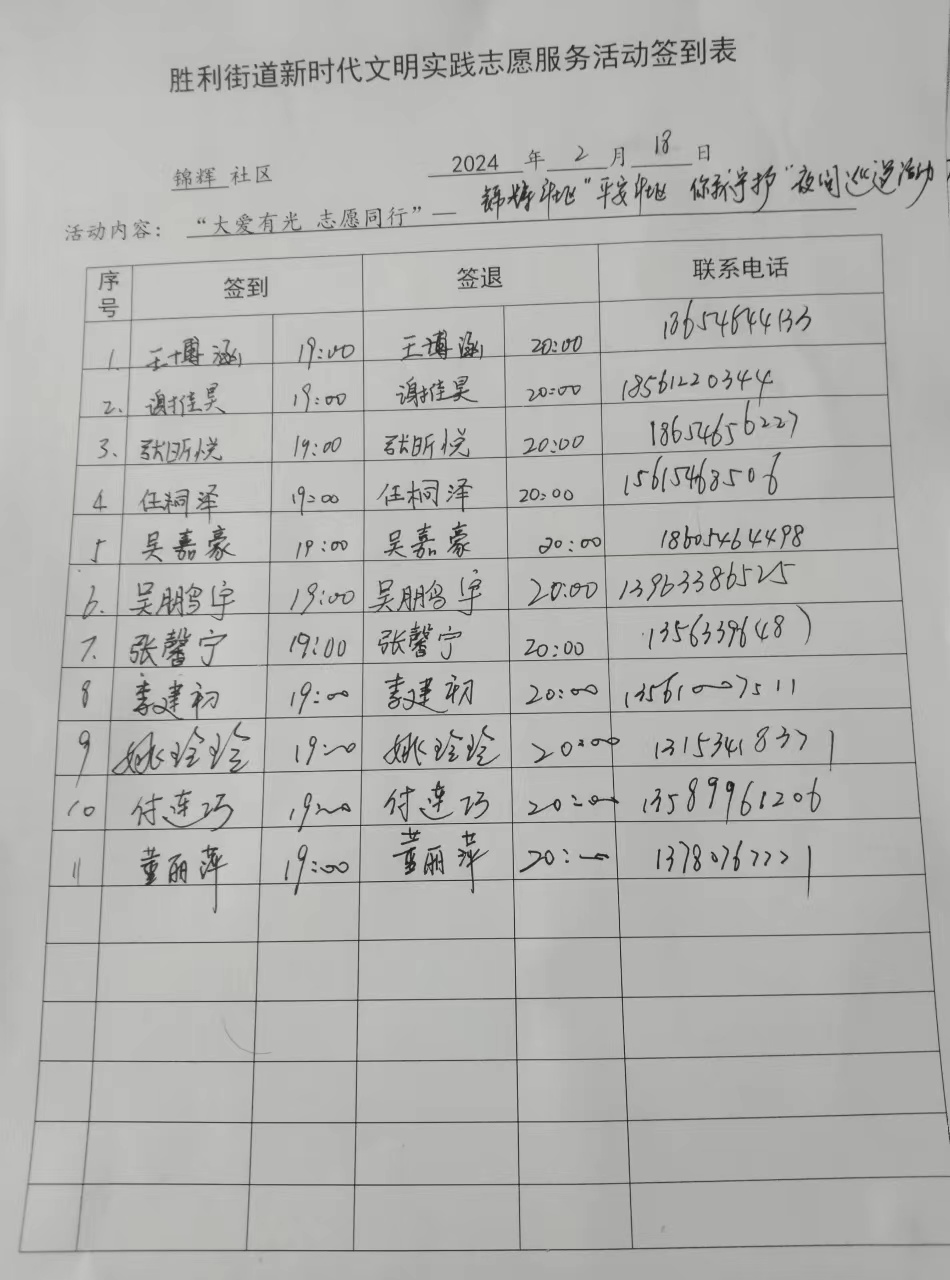 胜利街道新时代文明实践志愿服务活动签到表
锦辉 社区 2024 年 2 月 18 日
活动内容： “大爱有光 志愿同行”— 锦辉社区“平安社区 你我守护”夜间巡逻活动
序号 签到 签退 联系电话
1. 王博涵 19:00 王博涵 20:00 18654644133
2. 谢佳昊 19:00 谢佳昊 20:00 18561220344
3. 张昕悦 19:00 张昕悦 20:00 18654656227
4 任桐泽 19:00 任桐泽 20:00 15615463506
5 吴嘉豪 19:00 吴嘉豪 20:00 18605464498
6. 吴鹏宇 19:00 吴鹏宇 20:00 13963386525
7. 张馨宁 19:00 张馨宁 20:00
8 李建初 19:00 李建初 20:00 13561007511
9 姚玲玲 19:00 姚玲玲 20:00 13153418371
10 付连巧 19:00 付连巧 20:00 13589961206
11 董丽萍 19:00 董丽萍 20:00